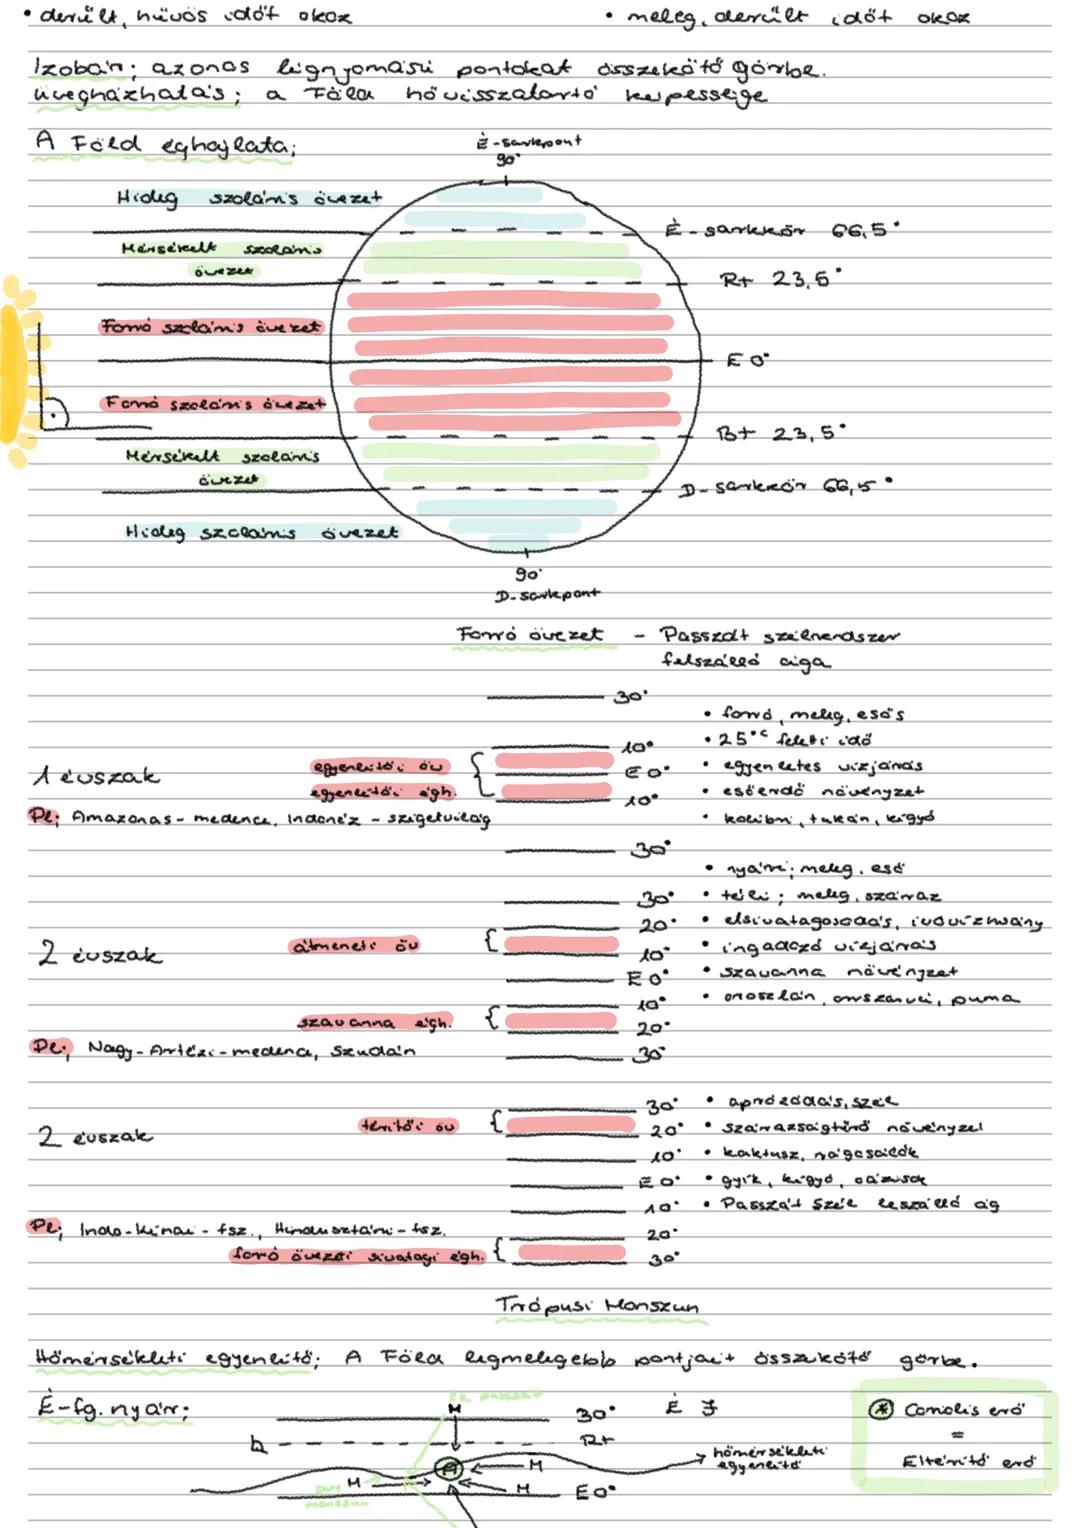 • derült, hűvös időt okoz
• meleg, derült időt okoz
Izobár; azonos légnyomású pontokat összekötő görbe.
üvegházhatás; a Föld hővisszatartó képessége
A Föld éghajlata;
É-sarkpont
90°
Hideg szoláris övezet
É-sarkkör 66,5°
Mérsékelt szoláris
övezet
Rt 23,5°
Forró szoláris övezet
E 0°
Forró szoláris övezet
Bt 23,5°
Mérsékelt szoláris
övezet
D-sarkkör 66,5°
Hideg szoláris övezet
90°
D-sarkpont
Forró övezet - Passzát szélrendszer
felszálló ága
30°
• forró, meleg, esős
10°
• 25°C feletti idő
1 évszak
egyenlítői öv
E 0°
• egyenletes vízjárás
egyenlítői égh.
10°
• esőerdő növényzet
Pl; Amazonas-medence, Indonéz-szigetvilág
• kolibri, tukán, kígyó
30°
• nyári; meleg, eső
30°
• téli; meleg, száraz
20°
• elsivatagosodás, ivóvízhiány
2 évszak
átmeneti öv
10°
• ingadozó vízjárás
E 0°
• szavanna növényzet
10°
• oroszlán, orrszarvú, puma
szavanna égh.
20°
Pl; Nagy-Artézi-medence, Szudán
30°
30°
• aprózódás, szél
2 évszak
térítői öv
20°
• szárazságtűrő növényzet
10°
• kaktusz, rágcsálók
E 0°
• gyík, kígyó, oázisok
10°
• Passzát szél leszálló ág
Pl; Indo-Kínai-fsz., Hindusztáni-fsz.
20°
forró övezeti sivatagi égh.
30°
Trópusi Monszun
Hőmérsékleti egyenlítő; A Föld legmelegebb pontjait összekötő görbe.
É-fg. nyár;
ÉK passzát
M
30°
É
Rt
A
M
hőmérsékleti
egyenlítő
M
M
E 0°
monszun
* Coriolis erő
=
Eltérítő erő